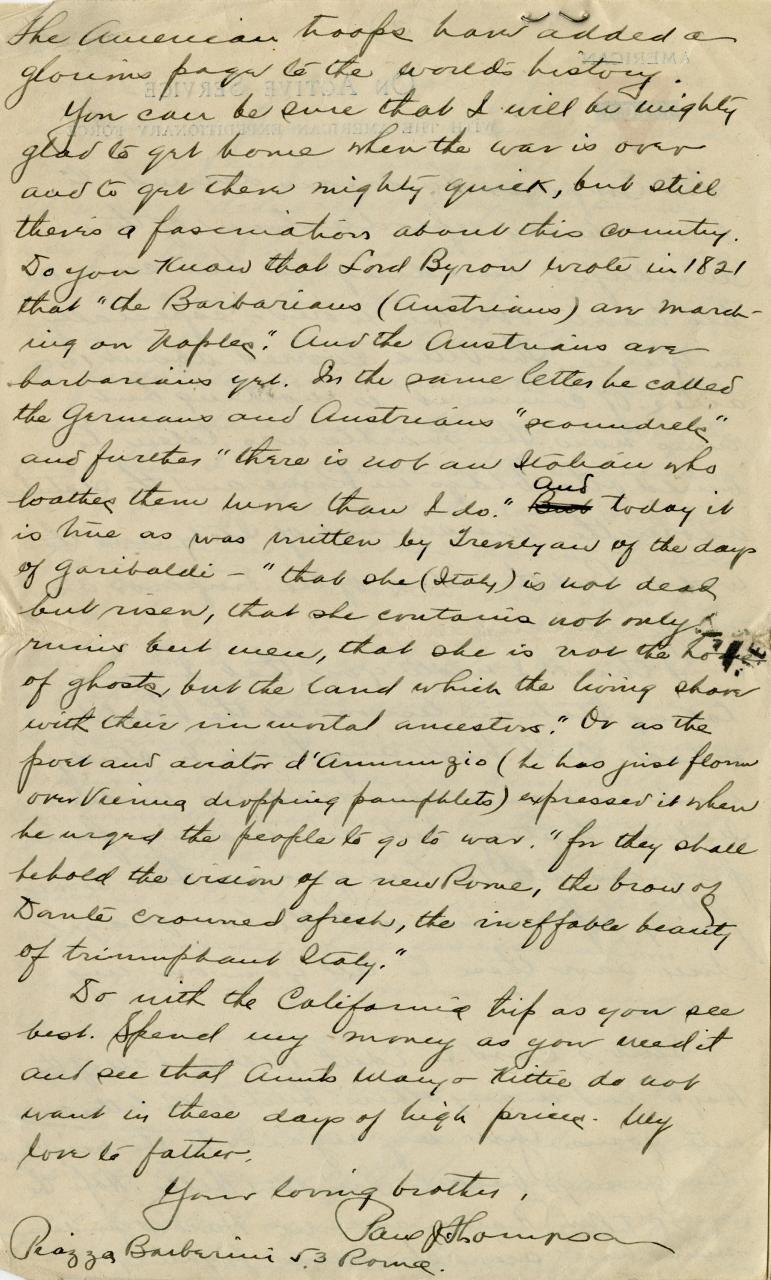 The American troops have added a
glorious page to the worlds history.
You can be sure that I will be mighty
glad to get home when the war is over
and to get there mighty quick, but still
there's a fascination about this country.
Do you know that Lord Byron wrote in 1821
that "the Barbarians (Austrians) are march-
ing on Naples". And the Austrians are
barbarians yet. In the same letter he called
the Germans and Austrians "scoundrels"
and further "there is not an Italian who
loathes them more than I do." But and today it
is true as was written by Trevelyan of the days
of Garibaldi – "that she (Italy) is not dead
but risen, that she contains not only
ruins but men, that she is not the
of ghosts, but the land which the living share
with their immortal ancestors." Or as the
poet and aviator d'Annunzio (he has just flown
over Vienna dropping pamphlets) expressed it when
he urged the people to go to war. "for they shall
behold the vision of a new Rome, the brow of
Dante crowned afresh, the ineffable beauty
of triumphant Italy."
Do with the California trip as you see
best. Spend my money as you need it
and see that Aunts Mary & Kittie do not
want in these days of high prices. My
love to father.
Your loving brother,
Paul J Thompson
Piazza Barberini 53 Rome.
AMERICAN
ON ACTIVE SERVICE
WITH THE AMERICAN EXPEDITIONARY FORCE